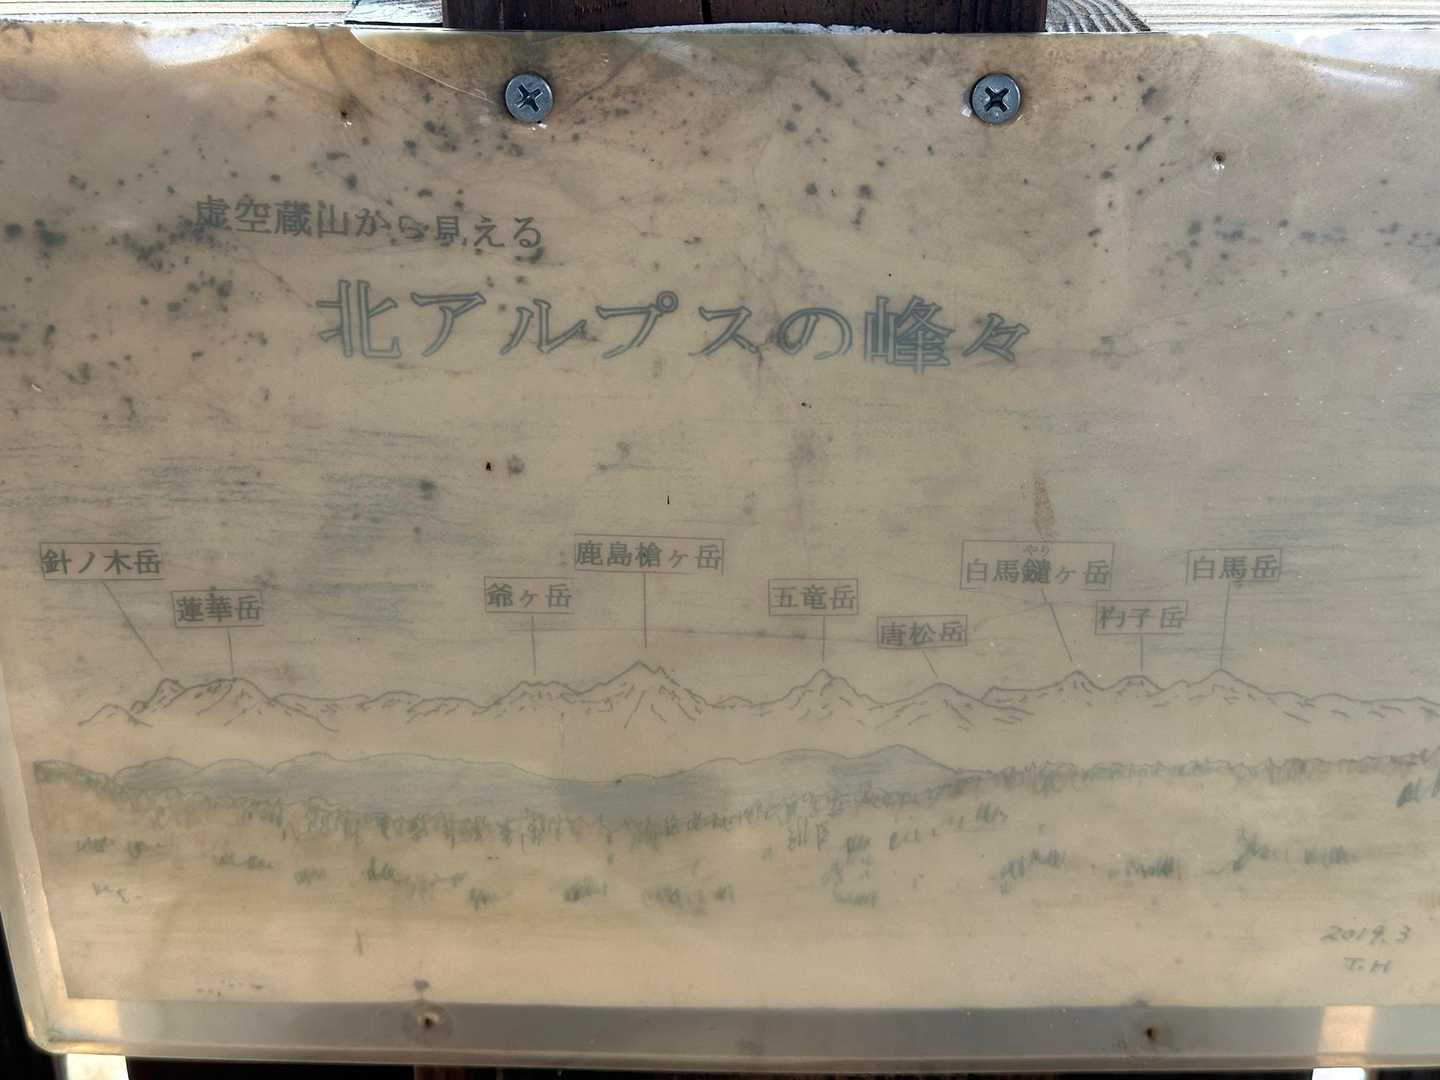 虚空蔵山から見える
北アルプスの峰々
針ノ木岳
蓮華岳
爺ヶ岳
鹿島槍ヶ岳
五竜岳
唐松岳
やり
白馬鑓ヶ岳
杓子岳
白馬岳
2019.3
T.H